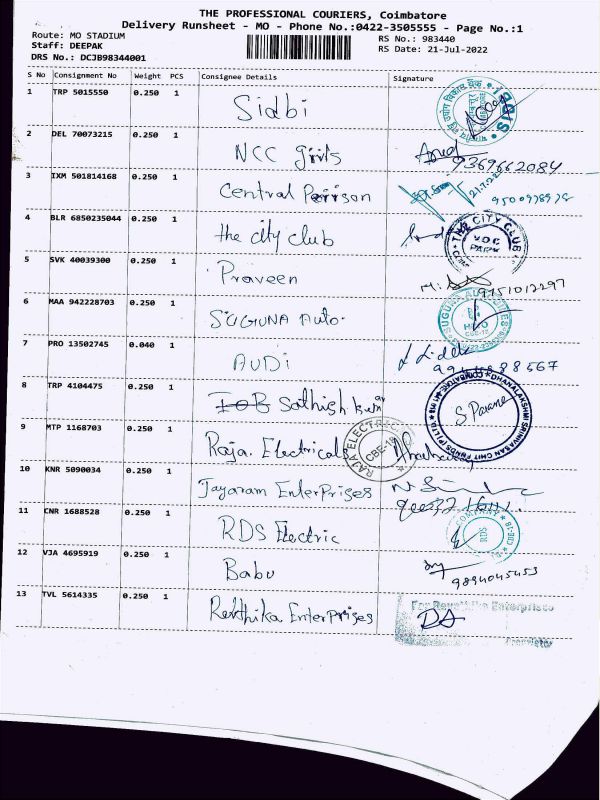 THE PROFESSIONAL COURIERS, Coimbatore
Delivery Runsheet - MO - Phone No.:0422-3505555 - Page No.:1
Route: MO STADIUM RS No.: 983440
Staff: DEEPAK RS Date: 21-Jul-2022
DRS No.: DCJB98344001
S No Consignment No Weight PCS Consignee Details Signature
1 TRP 5015550 0.250 1 Sidbi
2 DEL 70073215 0.250 1 NCC girls 9369662084
3 IXM 501814168 0.250 1 Central 21.7.22
4 BLR 6850235044 0.250 1 the city club THE CITY CLUB VOC PARK
5 SVK 40039300 0.250 1 Praveen 9751012297
6 MAA 942228703 0.250 1 SUGUNA Auto. SUGUNA
7 PRO 13502745 0.040 1 AUDi
8 TRP 4104475 0.250 1 IOB Sathish kumar DHANALAKSHMI SRINIVASAN CHIT FUNDS (P) LTD
9 MTP 1168703 0.250 1 Raja. Electricals RAJA ELECTRIC CBE-18
10 KNR 5090034 0.250 1 Jayaram Enterprises
11 CNR 1688528 0.250 1 RDS Electric COMPANY RDS CBE-18
12 VJA 4695919 0.250 1 Babu 9894045453
13 TVL 5614335 0.250 1 Revthika Enterprises For Enterprises